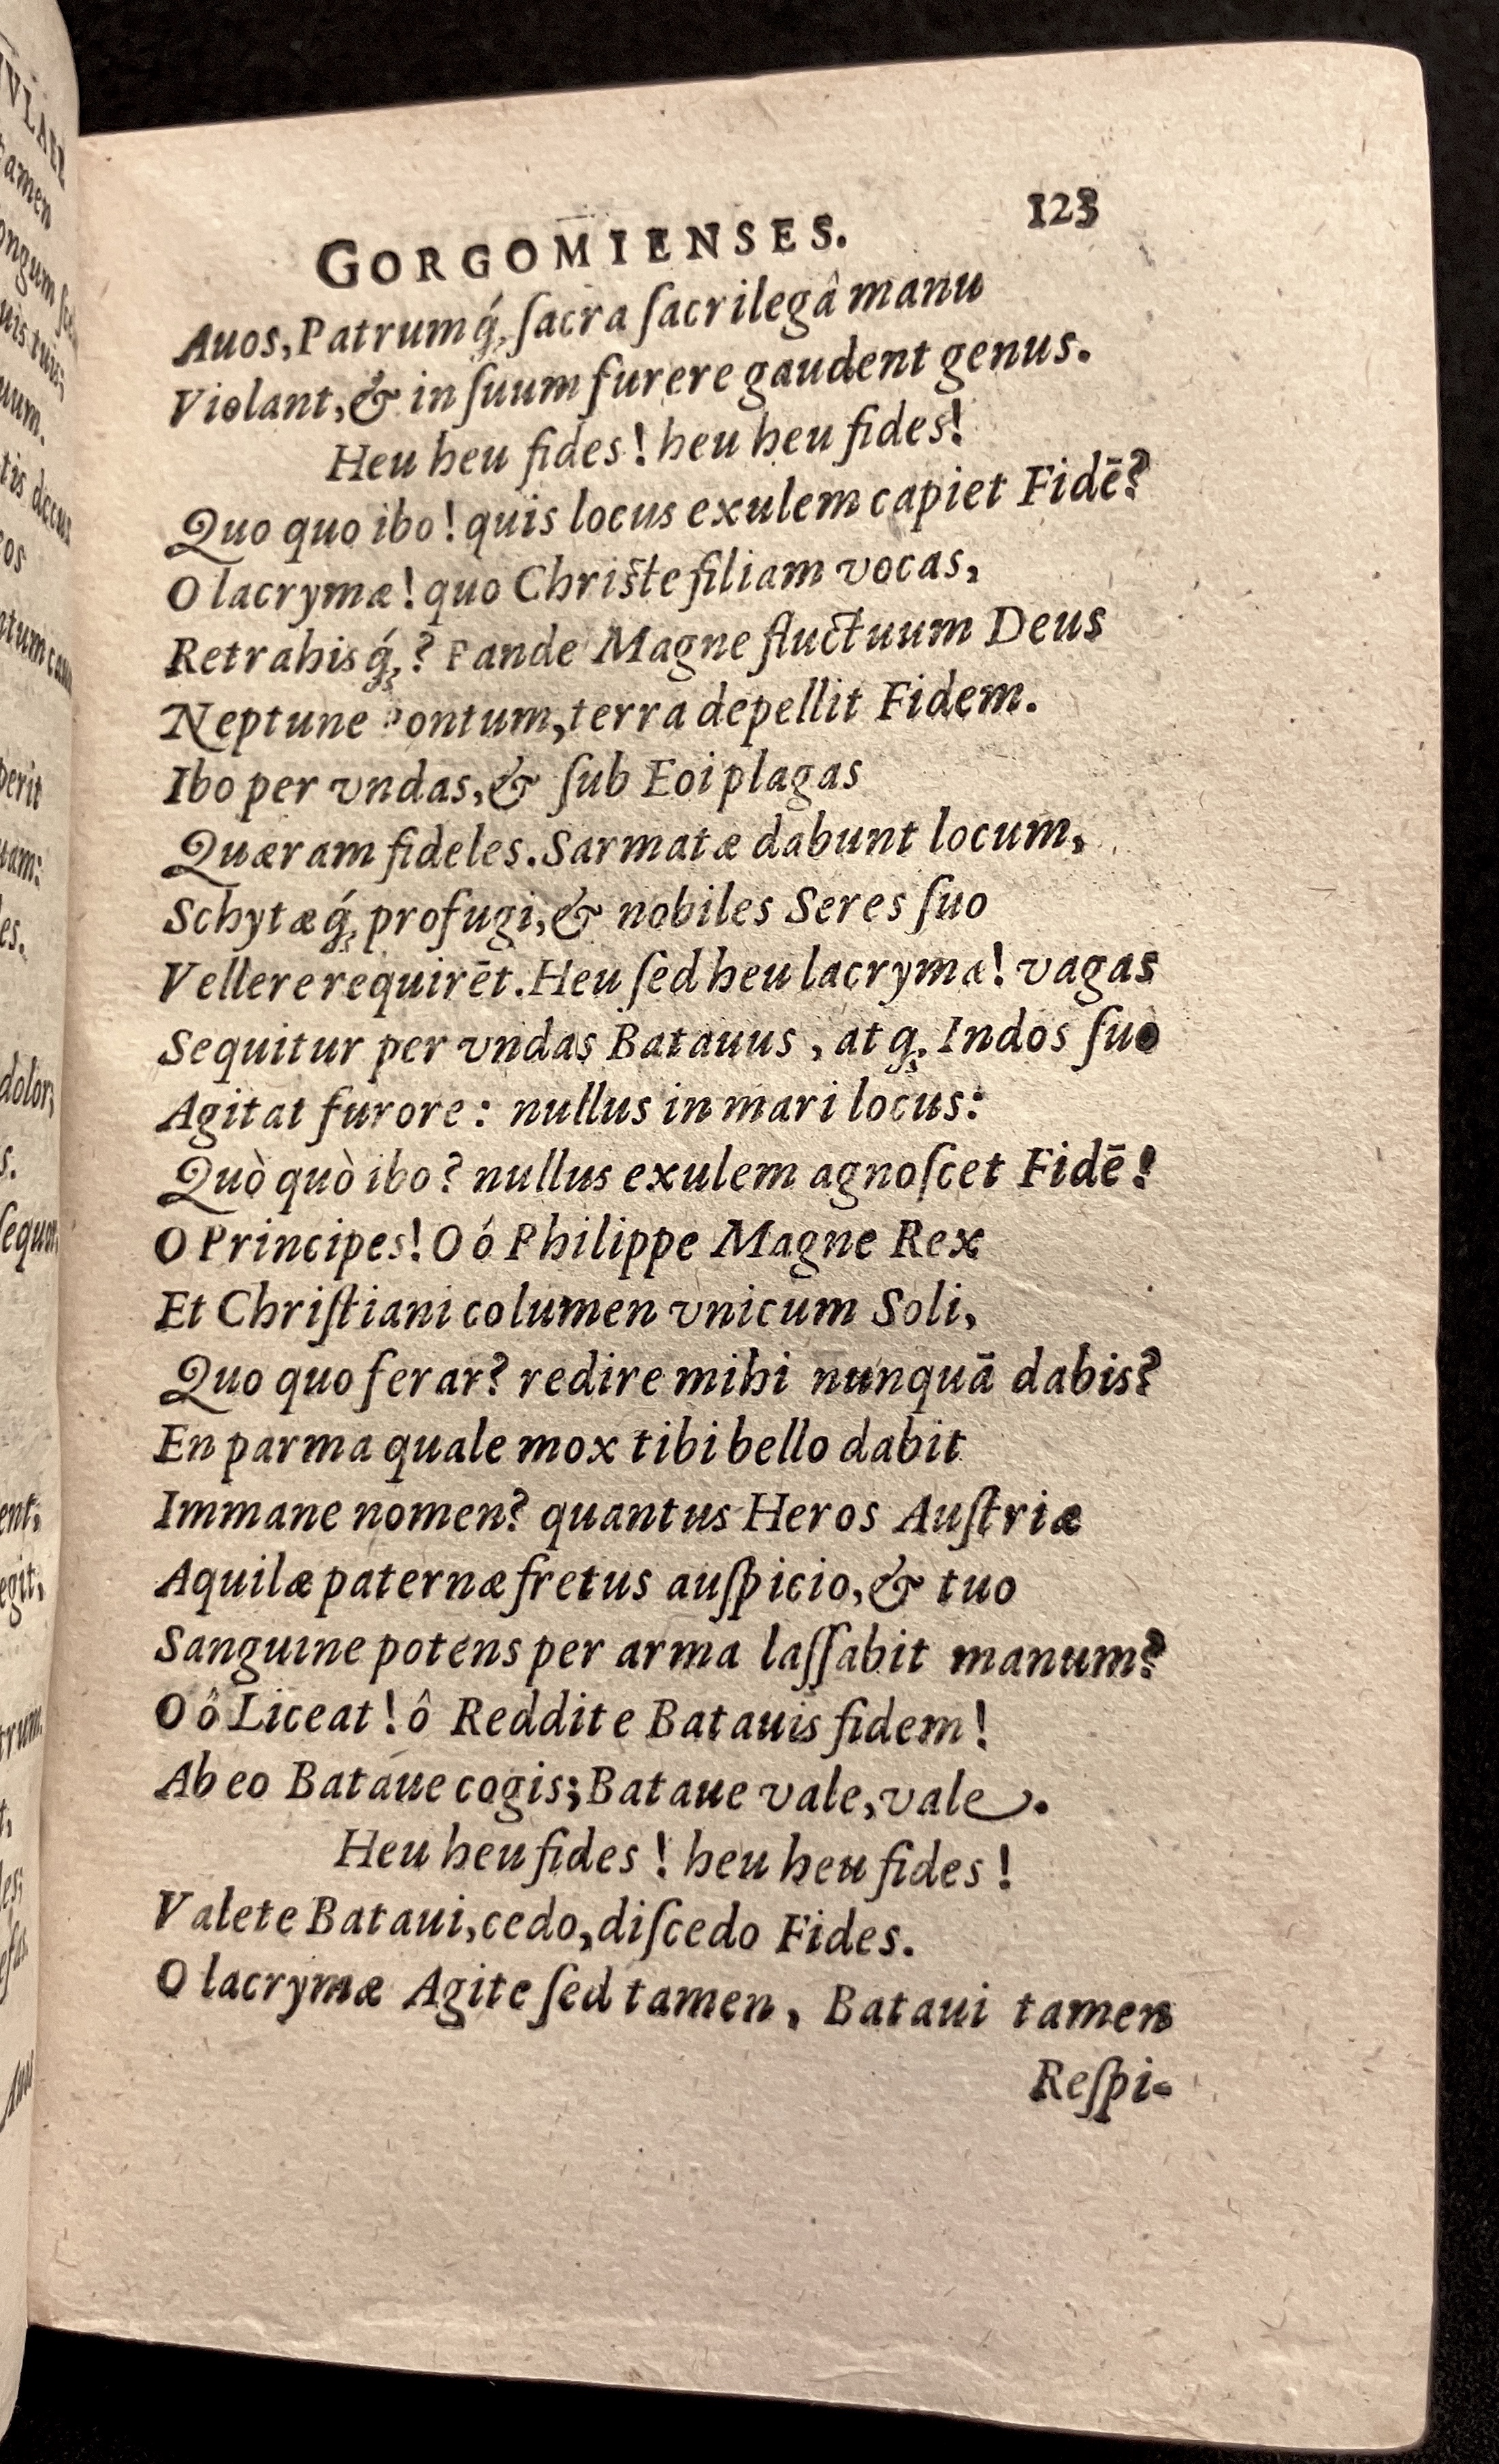 GORGOMIENSES. 123
Auos, Patrumq́; ſacra ſacrilegâ manu
Violant, & in ſuum furere gaudent genus.
Heu heu fides! heu heu fides!
Quo quo ibo! quis locus exulem capiet Fidē?
O lacrymæ! quo Chriſte filiam vocas,
Retrahisq́;? Pande Magne fluctuum Deus
Neptune Pontum, terra depellit Fidem.
Ibo per vndas, & ſub Eoi plagas
Quæram fideles. Sarmatæ dabunt locum,
Schytæq́; profugi, & nobiles Seres ſuo
Vellere requirēt. Heu ſed heu lacrymæ! vagas
Sequitur per vndas Batauus, atq; Indos ſuo
Agitat furore: nullus in mari locus:
Quò quò ibo? nullus exulem agnoſcet Fidē!
O Principes! O ó Philippe Magne Rex
Et Chriſtiani columen vnicum Soli,
Quo quo ferar? redire mihi nunquā dabis?
En parma quale mox tibi bello dabit
Immane nomen? quantus Heros Auſtriæ
Aquilæ paternæ fretus auſpicio, & tuo
Sanguine potens per arma laſſabit manum?
O ô Liceat! ô Reddite Batauis fidem!
Abeo Bataue cogis; Bataue vale, vale.
Heu heu fides! heu heu fides!
Valete Bataui, cedo, diſcedo Fides.
O lacrymæ Agite ſed tamen, Bataui tamen
Reſpi-